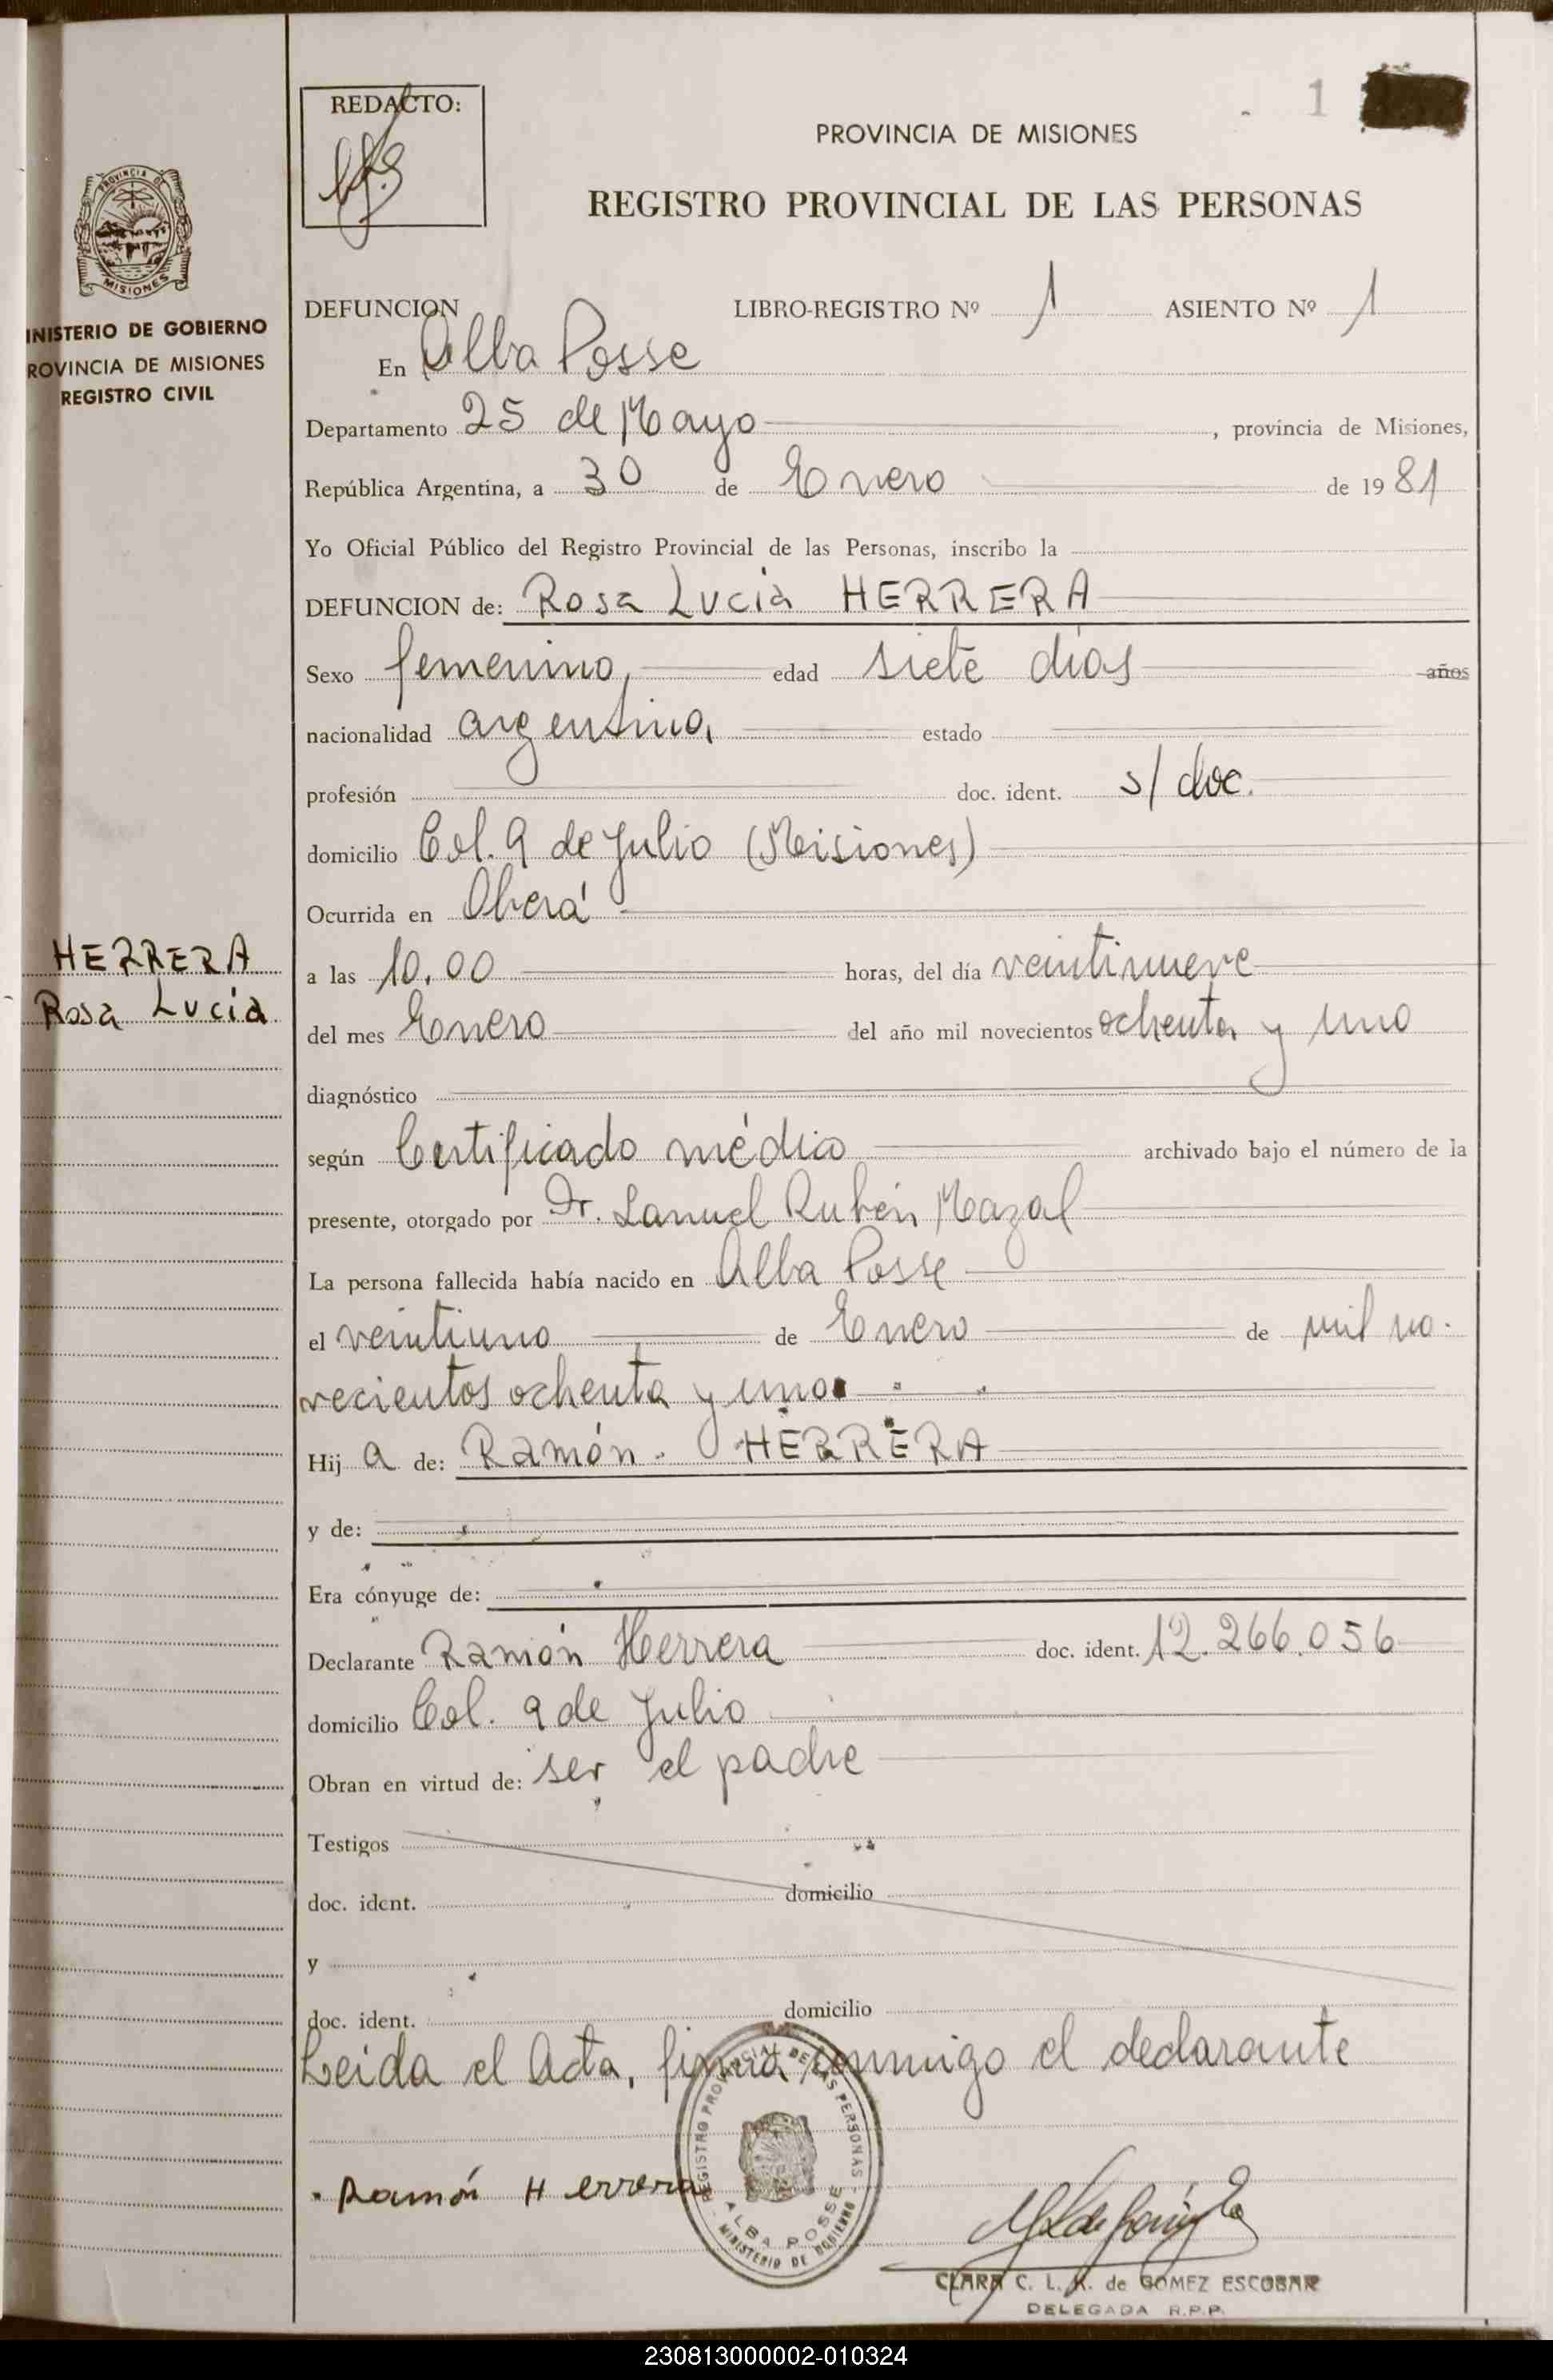 REDACTO:
1
PROVINCIA DE MISIONES
REGISTRO PROVINCIAL DE LAS PERSONAS
PROVINCIA DE
MISIONES
INISTERIO DE GOBIERNO
ROVINCIA DE MISIONES
REGISTRO CIVIL
DEFUNCION LIBRO-REGISTRO Nº 1 ASIENTO Nº 1
En Alba Posse
Departamento 25 de Mayo, provincia de Misiones,
República Argentina, a 30 de Enero de 1981
Yo Oficial Público del Registro Provincial de las Personas, inscribo la
DEFUNCION de: Rosa Lucia HERRERA
Sexo femenino, edad siete días años
nacionalidad argentina, estado
profesión doc. ident. s/ doc.
domicilio Col. 9 de Julio (Misiones)
Ocurrida en Oberá
HERRERA
Rosa Lucia
a las 10.00 horas, del día veintinueve
del mes Enero del año mil novecientos ochenta y uno
diagnóstico
según Certificado médico archivado bajo el número de la
presente, otorgado por Dr. Rubén Mazal
La persona fallecida había nacido en Alba Posse
el veintiuno de Enero de mil no-
vecientos ochenta y uno
Hij a de: Ramón HERRERA
y de:
Era cónyuge de:
Declarante Ramón Herrera doc. ident. 12.266.056
domicilio Col. 9 de Julio
Obran en virtud de: ser el padre
Testigos
doc. ident. domicilio
y
doc. ident. domicilio
Leida el Acta, firma conmigo el declarante
REGISTRO PROVINCIAL DE LAS PERSONAS
ALBA POSSE
MINISTERIO DE GOBIERNO
Ramón Herrera
CLARA C. L. K. de GOMEZ ESCOBAR
DELEGADA R.P.P.
230813000002-010324